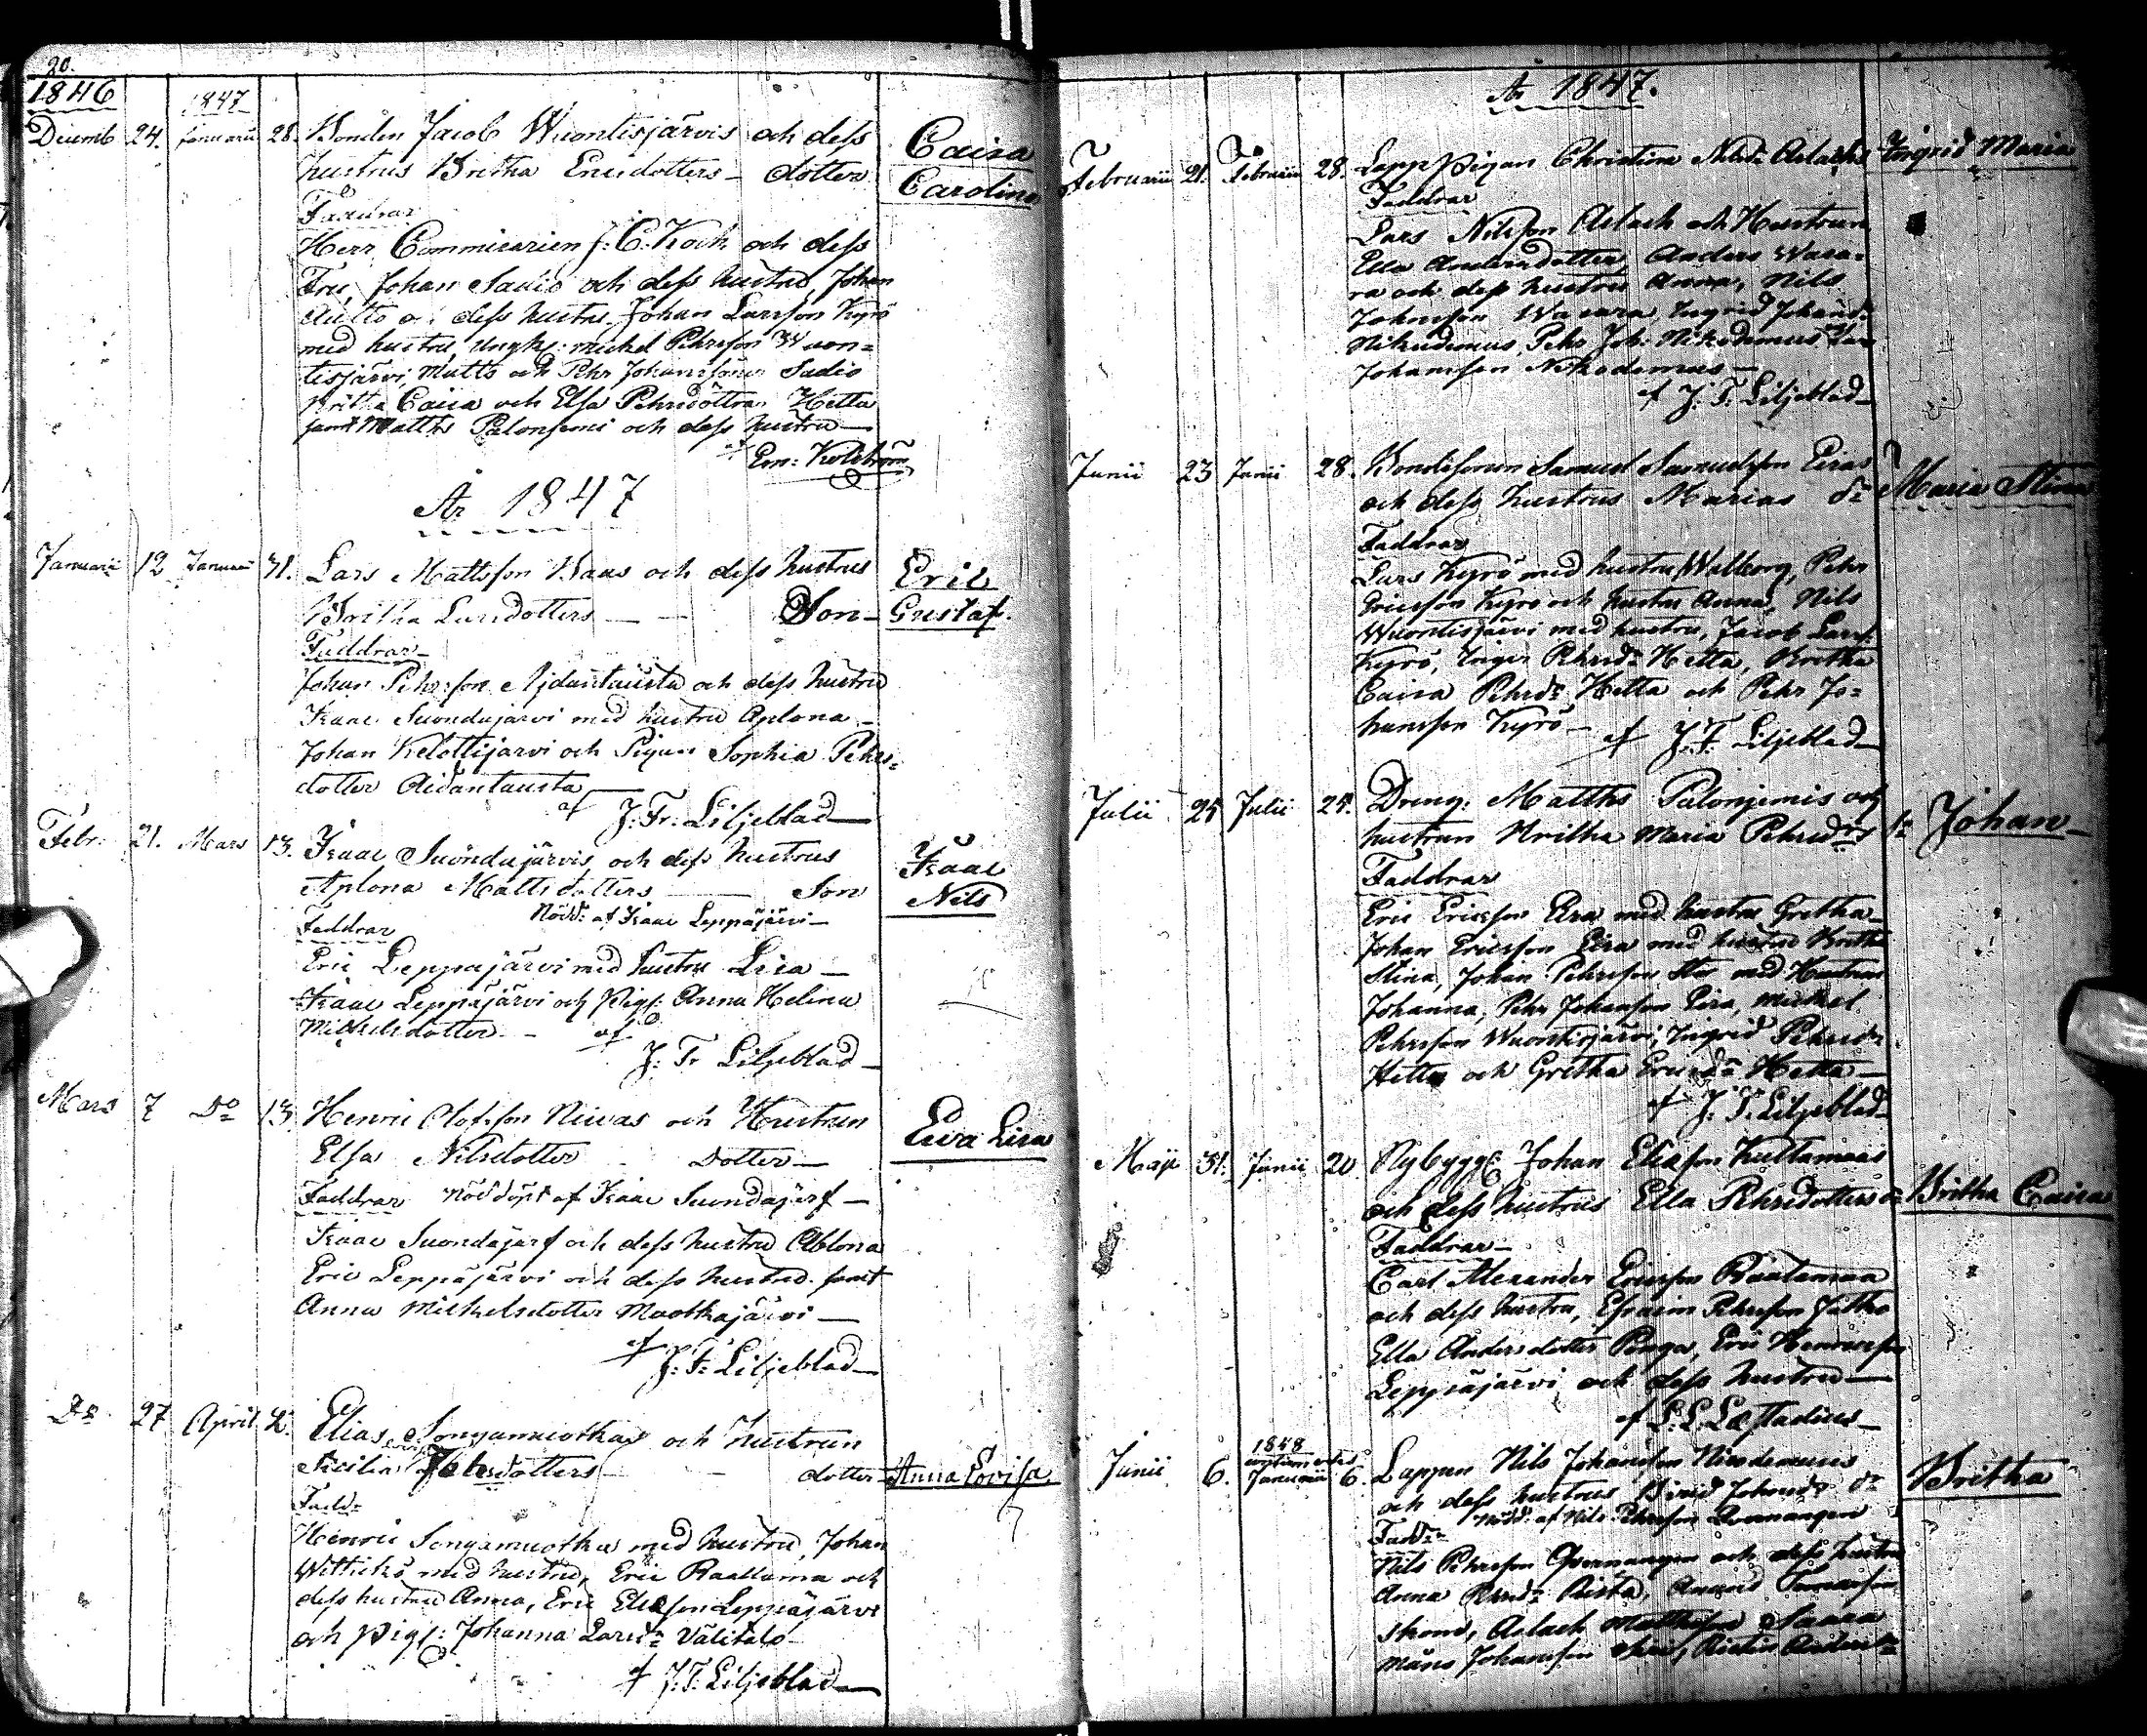 20.
1846
1847
Decemb 24. Januarii 28. Bonden Jacob Wuontisjärvis och dess
hustrus Britha Ericsdotters – dotter
Caisa
Carolina
Faddrar
Herr Commisarien J: C. Koch och dess
Fru, Johan Sadio och dess hustru, Johan
dess hustru Johan Larsson Kyrö
med hustru, Michel Pehrsson Wuon=
tisjärvi, Matts och Pehr Johanssöner Sadio
Britha Caisa och Elsa Pehrsdöttrar Hetta
samt Matths Palonjemi och dess hustru –
af Em: Kolström
År 1847
Januarii 12 Januarii 31. Lars Mattsson Kaus och dess hustrus
Britha Larsdotters – – Son –
Eric
Gustaf.
Faddrar –
Johan Pehrsson Aidantausta och dess hustru
Isaac Suondajärvi med hustru Aplona –
Johan Kelottijärvi och Pigan Sophia Pehrs=
dotter Aidantausta
af J: Fr. Liljeblad –
Febr. 21. Mars 13. Isaac Suondajärvis och dess hustrus
Aplona Mattsdotters – Son
Isaac
Nils
Nödd: af Isaac Leppäjärvi –
Faddrar
Eric Leppäjärvi med hustru Lisa –
Isaac Leppäjärvi och Pig: Anna Helena
Michelsdotter – af
J: Fr Liljeblad –
Mars 7 Do 13. Henric Olofsson Niwas och Hustrun
Elsa Nilsdotter – Dotter –
Eva Lisa
Faddrar Nöddöpt af Isaac Suondajärf –
Isaac Suondajärf och dess hustru Ablona
Eric Leppäjärvi och dess hustru samt
Anna Michelsdotter Muotkajärvi –
af
J: Fr Liljeblad –
Do 27 April 2. Elias Songamuotka och hustrun
dotters – dotter –
Anna Lovisa
Fadd:
Henric Songamuotka med hustru, Johan
Wittikö med hustru, Eric Raattama och
dess hustru Anna, Eric Eliasson Leppäjärvi
och Pig: Johanna Larsd: Välitalo –
af J: F. Liljeblad –
År 1847.
Februarii 21. Februarii 28. Lapp Pigan Christina Nilsd: Aslachs
Ingrid Maria
Faddrar
Lars Nilsson Aslach och Hustrun
Ella Andersdotter, Anders Wasa=
ra och dess hustru Anna, Nils
Johansson Wasara Ingrid Johansd:
Nikudemus, Pehr Joh: Nikodemus
Johansson Nikodemus –
af J. F. Liljeblad –
Junii 23 Junii 28. Bondesonen Samuel Samuelsson Eiras
och dess hustrus Marias dr
Maria Stina
Faddrar
Lars Kyrö med hustru Walborg, Pehr
Ericsson Kyrö och hustru Anna, Nils
Wuontisjärvi med hustru, Jacob Lars:
Kyrö, Inger Pehrsdr Hetta, Britha
Caisa Pehrsdr Hetta och Pehr Jo=
hansson Kyrö –
af J. F. Liljeblad –
Julii 24 Julii 24. Dreng: Matths Palonjemis och
hustrun Britha Maria Pehrsdrs
Johan –
Faddrar
Eric Ericsson Eira med hustru Gretha –
Johan Ericsson Eira med hustru Britha
Stina, Johan Pehrsson med Hustrun
Johanna, Pehr Johansson Eira, Michel
Pehrsson Wuontisjärvi, Ingrid Pehrsdr
Hetta och Gretha Ericsdr Hetta –
af J. F. Liljeblad –
Maji 31. Junii 20 Nybygg: Johan Eliasson Kuttamaas
och dess hustrus Ella Pehrsdotters dr
Britha Caisa
Faddrar –
Carl Alexander Ericsson Raatamaa
och dess hustru, Efraim Pehrsson Juthio
Ella Andersdotter Panga, Eric Henricsson
Leppäjärvi och dess hustru –
af L. L. Læstadius –
1848
Junii 6. Januarii 6. Lappen Nils Johansson Nicodemus
och dess hustrus Johansdr dr
Britha
Nödd: af Nils Pehrsson Qvenangen
Fadd:
Nils Pehrsson Qvenangen och dess hustru
Anna Pehrsdr
Aslach Matthsson
Måns Johansson